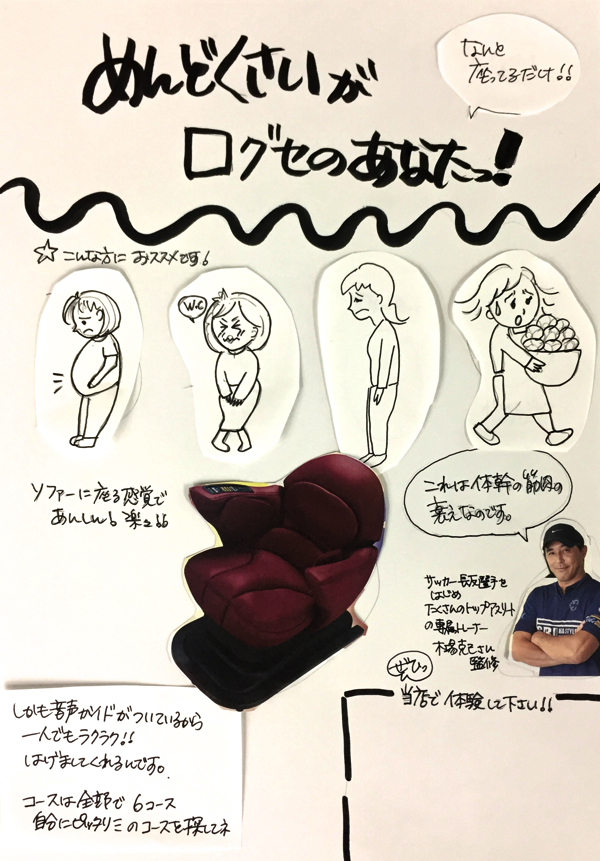 めんどくさいが
口グセのあなたっ!
なんと
座ってるだけ!!
☆こんな方に おススメです!
W.C
ソファーに座る感覚で
あんしん!楽々!!
これは体幹の筋肉の
衰えなのです。
サッカー長友選手を
はじめ
たくさんのトップアスリート
の専属トレーナー
木場克己さん
監修
ぜひっ
当店で体験して下さい!!
しかも音声ガイドがついているから
一人でもラクラク!!
はげましてくれるんです。
コースは全部で 6コース
自分にピッタリのコースを探してネ